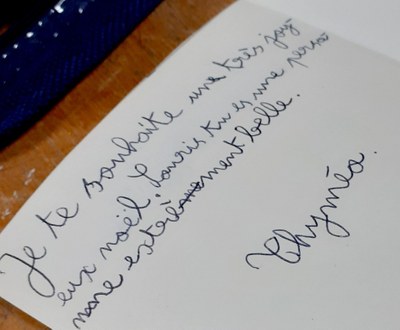 Je te souhaite une très joy-
eux noël. Souris, tu es une perso
nne extrêmement belle.
Thyméa.